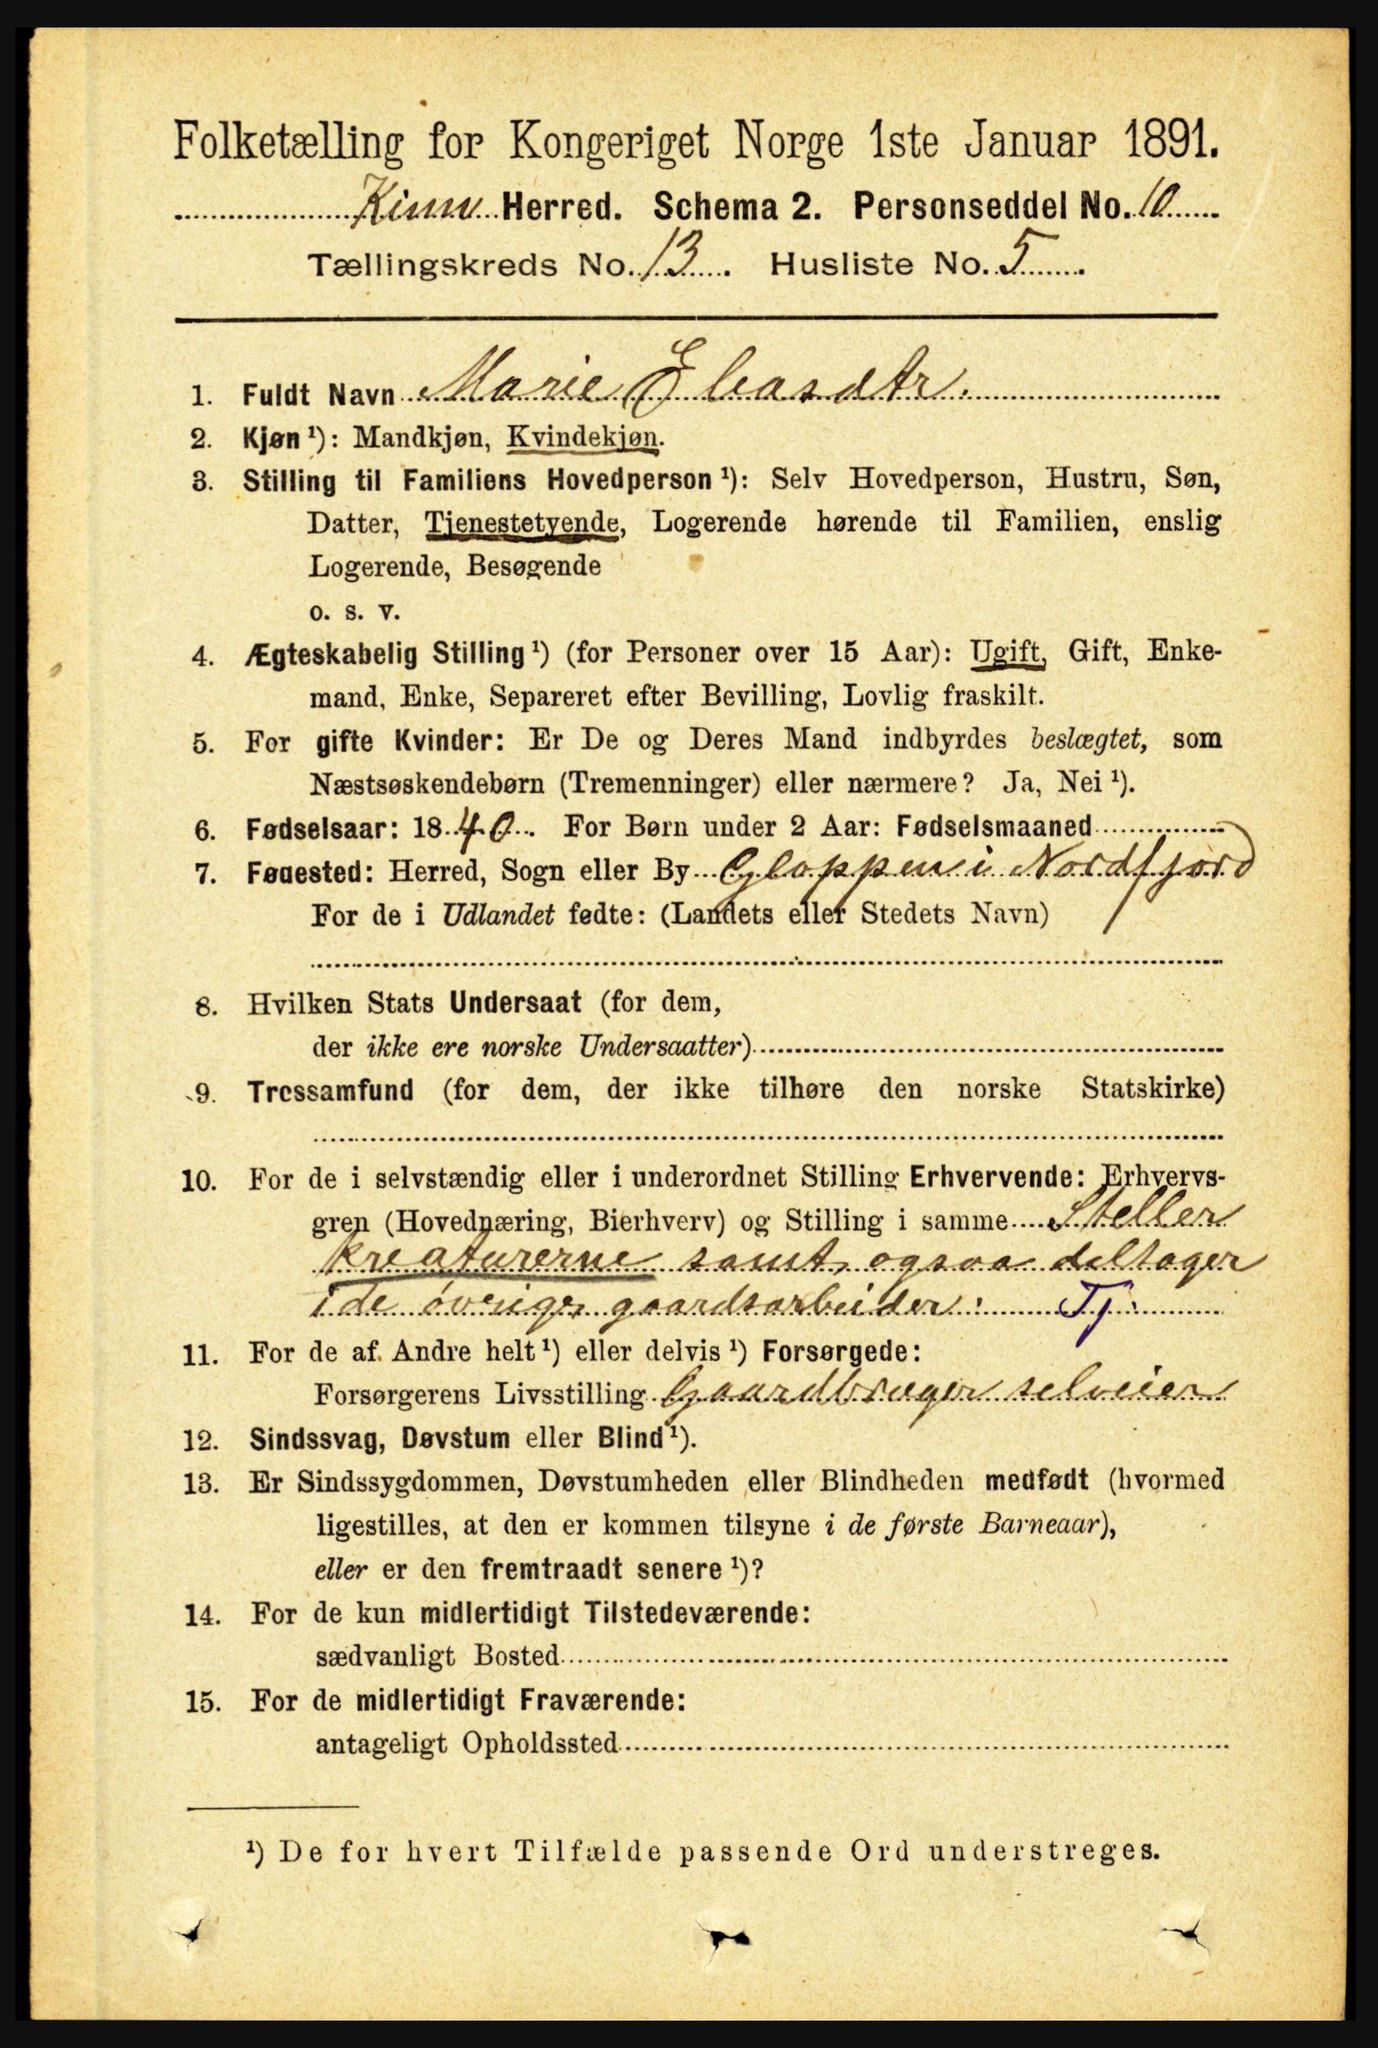 Folketælling for Kongeriget Norge 1ste Januar 1891.
Kinn Herred. Schema 2. Personseddel No. 10
Tællingskreds No. 13. Husliste No. 5.
1. Fuldt Navn Marie Eliasdtr.
2. Kjøn ¹): Mandkjøn, Kvindekjøn.
3. Stilling til Familiens Hovedperson ¹): Selv Hovedperson, Hustru, Søn,
Datter, Tjenestetyende, Logerende hørende til Familien, enslig
Logerende, Besøgende
o. s. v.
4. Ægteskabelig Stilling ¹) (for Personer over 15 Aar): Ugift, Gift, Enke-
mand, Enke, Separeret efter Bevilling, Lovlig fraskilt.
5. For gifte Kvinder: Er De og Deres Mand indbyrdes beslægtet, som
Næstsøskendebørn (Tremenninger) eller nærmere? Ja, Nei ¹).
6. Fødselsaar: 1840. For Børn under 2 Aar: Fødselsmaaned
7. Fødested: Herred, Sogn eller By Gloppen i Nordfjord
For de i Udlandet fødte: (Landets eller Stedets Navn)
8. Hvilken Stats Undersaat (for dem,
der ikke ere norske Undersaatter)
9. Trossamfund (for dem, der ikke tilhøre den norske Statskirke)
10. For de i selvstændig eller i underordnet Stilling Erhvervende: Erhvervs-
gren (Hovednæring, Bierhverv) og Stilling i samme Steller
kreaturerne samt ogsaa deltager
i de øvrige gaardsarbeider. Tj.
11. For de af Andre helt ¹) eller delvis ¹) Forsørgede:
Forsørgerens Livsstilling Gaardbruger selveier
12. Sindssvag, Døvstum eller Blind ¹).
13. Er Sindssygdommen, Døvstumheden eller Blindheden medfødt (hvormed
ligestilles, at den er kommen tilsyne i de første Barneaar),
eller er den fremtraadt senere ¹)?
14. For de kun midlertidigt Tilstedeværende:
sædvanligt Bosted
15. For de midlertidigt Fraværende:
antageligt Opholdssted
¹) De for hvert Tilfælde passende Ord understreges.